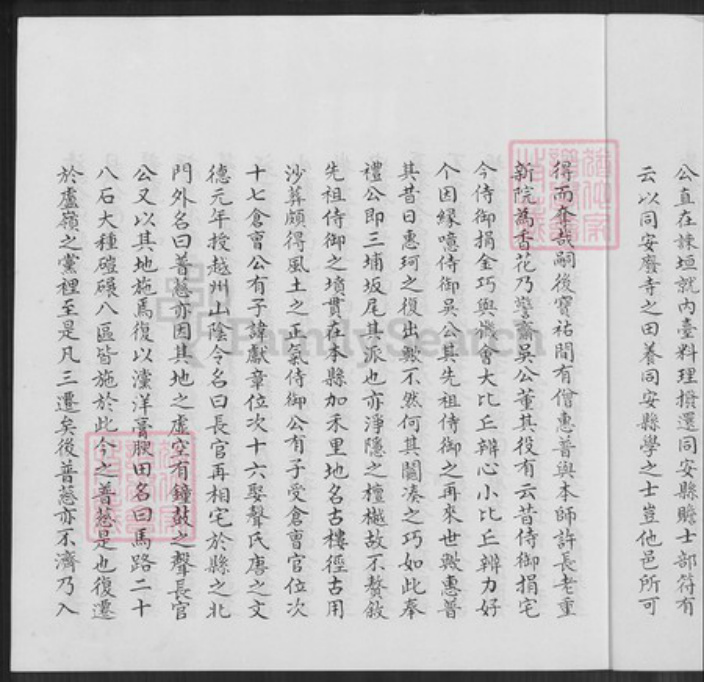 公直在諫垣就內臺料理撥還同安縣贍士部符有
云以同安廢寺之田養同安縣學之士豈他邑所可
得而奪哉嗣後寶祐間有僧惠普與本師許長老重
新院為香花乃警齋吳公董其役有云昔侍御捐宅
今侍御捐金巧與機會大比丘辨心小比丘辨力好
个因緣噫侍御吳公其先祖侍御之再來世歟惠普
其昔日惠珂之復出歟不然何其關湊之巧如此奉
禮公即三埔坂尾其派也亦淨隱之檀樾故不贅敍
先祖侍御之墳貫在本縣加禾里地名古樓徑古用
沙葬頗得風土之正氣侍御公有子受倉曹官位次
十七倉曹公有子諱獻章位次十六娶聲氏唐之文
德元年授越州山陰令名曰長官再相宅於縣之北
門外名曰普慈亦因其地之虛空有鐘鼓之聲長官
公又以其地施焉復以潼洋膏腴田名曰馬路二十
八石大種磑碾八區皆施於此今之普慈是也復遷
於盧嶺之黨裡至是凡三遷矣後普慈亦不濟乃入
FamilySearch